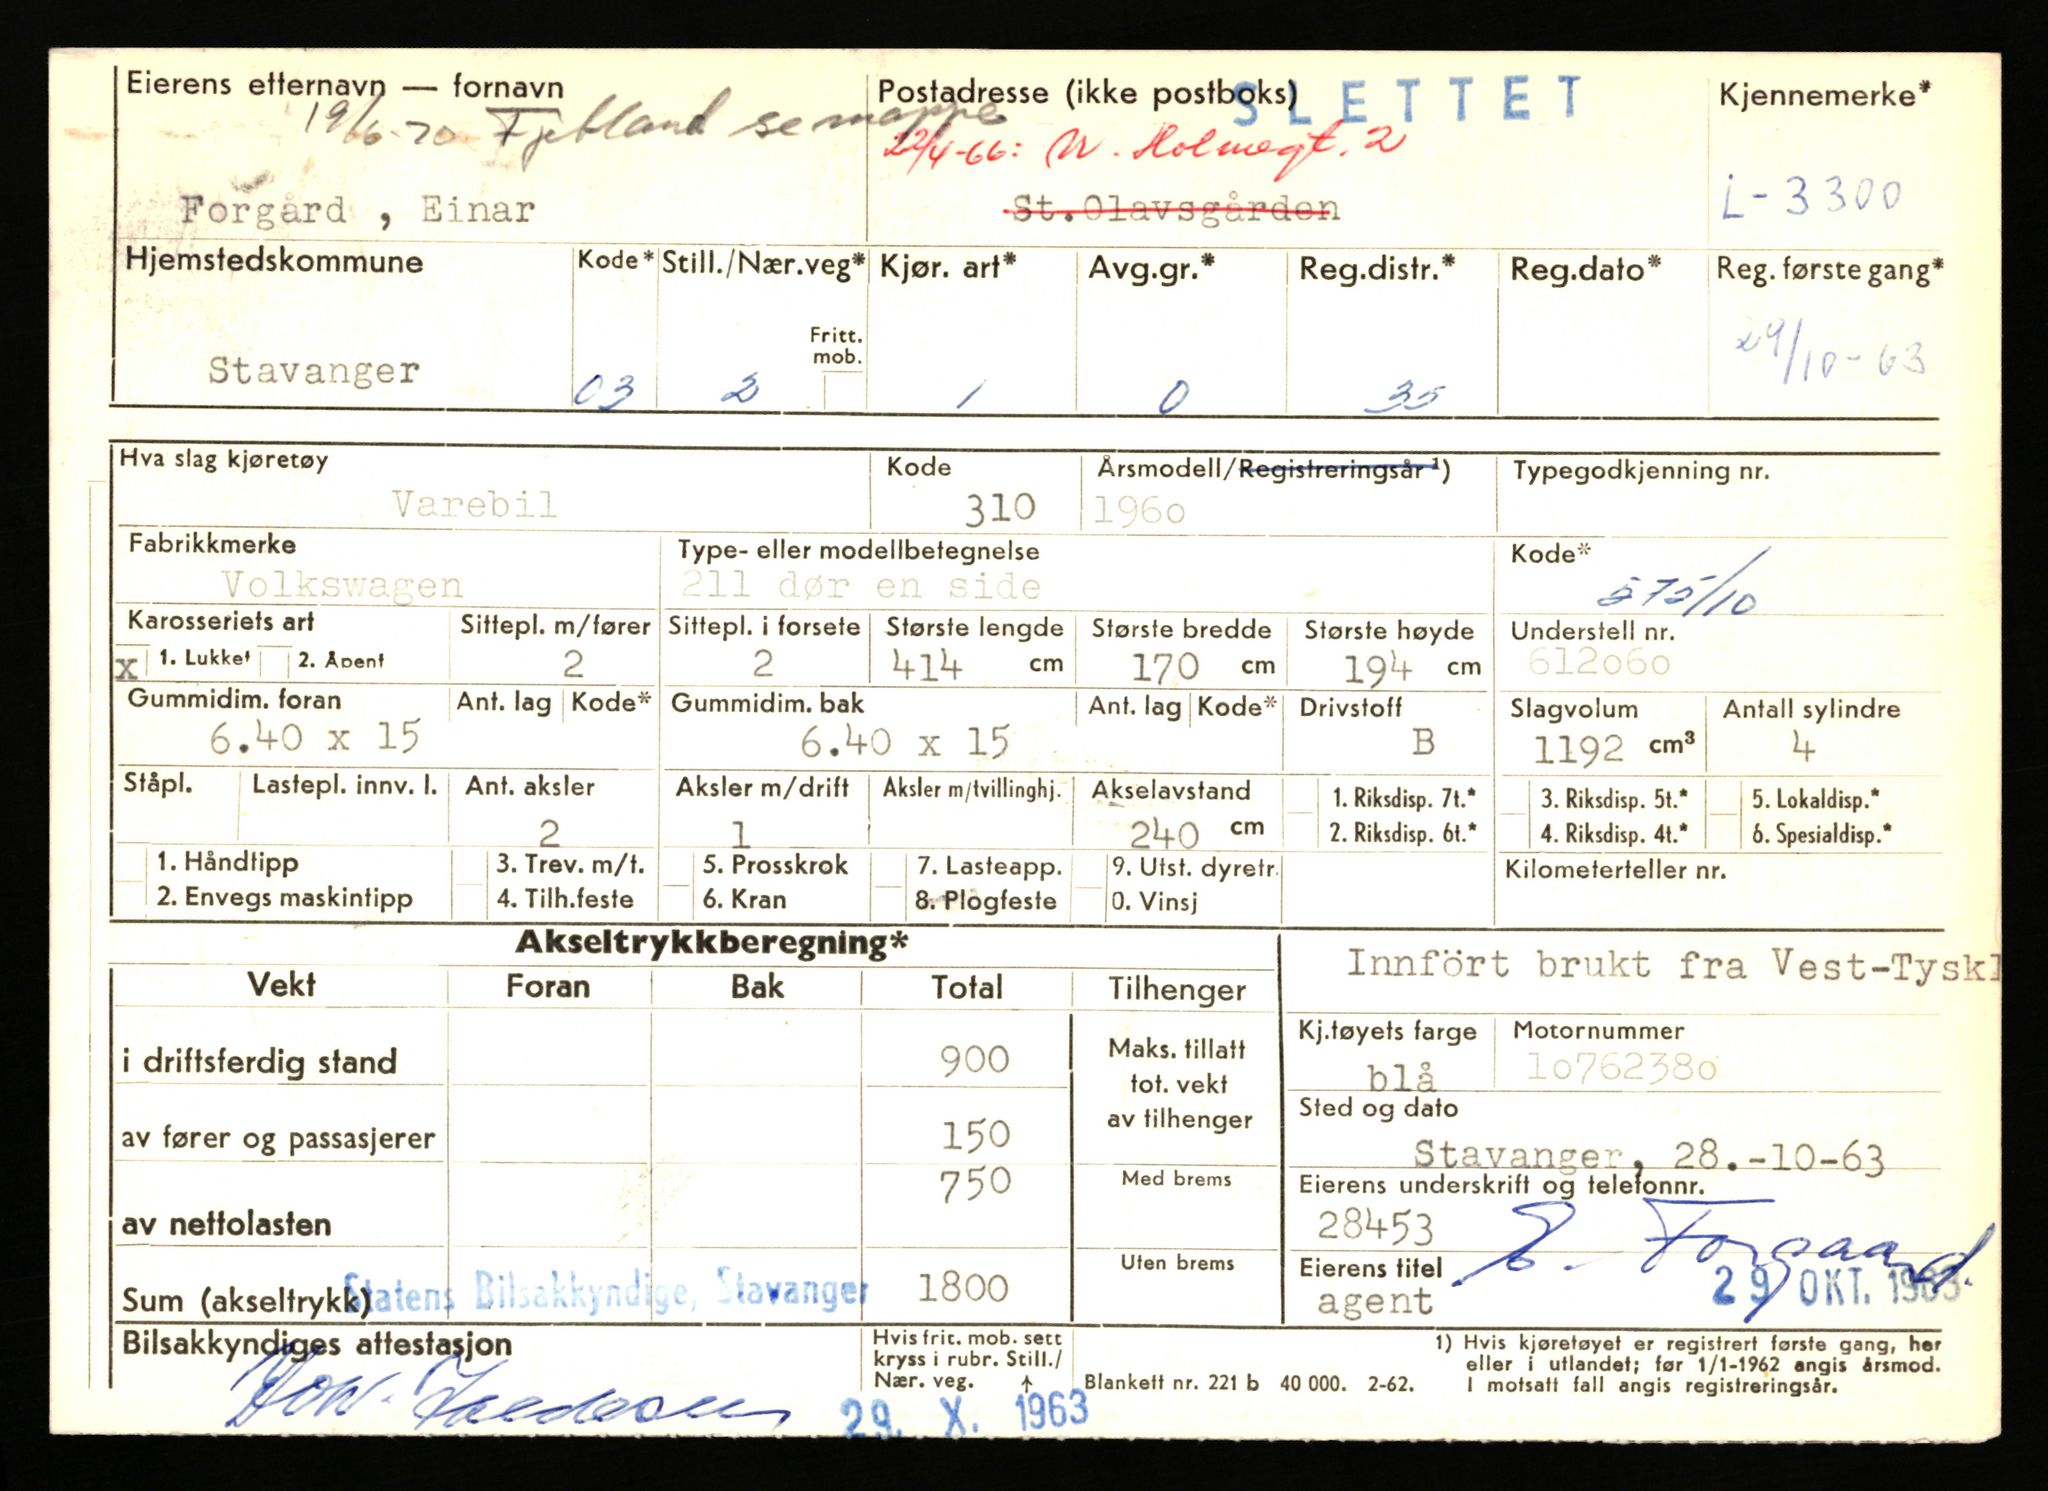 Eierens etternavn — fornavn
Postadresse (ikke postboks)
SLETTET
Kjennemerke*
19/6-70 Fjetland se mappe
22/4-66: N. Holmegt. 2
Forgård , Einar
St.Olavsgården
L-3300
Hjemstedskommune
Kode*
Still./Nær.veg*
Kjør. art*
Avg.gr.*
Reg.distr.*
Reg.dato*
Reg. første gang*
Fritt. mob.
Stavanger
03
2
1
0
35
29/10-63
Hva slag kjøretøy
Kode
Årsmodell/Registreringsår ¹)
Typegodkjenning nr.
Varebil
310
1960
Fabrikkmerke
Type- eller modellbetegnelse
Kode*
Volkswagen
211 dør en side
575/10
Karosseriets art
Sittepl. m/fører
Sittepl. i forsete
Største lengde
Største bredde
Største høyde
Understell nr.
x 1. Lukket 2. Åpent
2
2
414 cm
170 cm
194 cm
612060
Gummidim. foran
Ant. lag
Kode*
Gummidim. bak
Ant. lag
Kode*
Drivstoff
Slagvolum
Antall sylindre
6.40 x 15
6.40 x 15
B
1192 cm³
4
Ståpl.
Lastepl. innv. l.
Ant. aksler
Aksler m/drift
Aksler m/tvillinghj.
Akselavstand
1. Riksdisp. 7t.*
3. Riksdisp. 5t.*
5. Lokaldisp.*
2
1
240 cm
2. Riksdisp. 6t.*
4. Riksdisp. 4t.*
6. Spesialdisp.*
1. Håndtipp
3. Trev. m/t.
5. Prosskrok
7. Lasteapp.
9. Utst. dyretr.
Kilometerteller nr.
2. Envegs maskintipp
4. Tilh.feste
6. Kran
8. Plogfeste
0. Vinsj
Akseltrykkberegning*
Innfört brukt fra Vest-Tyskl
Vekt
Foran
Bak
Total
Tilhenger
Kj.tøyets farge
Motornummer
i driftsferdig stand
900
Maks. tillatt
tot. vekt
av tilhenger
blå
10762380
Sted og dato
av fører og passasjerer
150
Stavanger, 28.-10-63
av nettolasten
750
Med brems
Eierens underskrift og telefonnr.
28453
E. Forgaard.
Sum (akseltrykk)
Statens Bilsakkyndige, Stavanger
1800
Uten brems
Eierens titel
agent
29 OKT. 1963
Bilsakkyndiges attestasjon
Hvis frit. mob. sett
kryss i rubr. Still./
Nær. veg. ↑
Blankett nr. 221 b 40 000. 2-62.
1) Hvis kjøretøyet er registrert første gang, her
eller i utlandet; før 1/1-1962 angis årsmod.
I motsatt fall angis registreringsår.
29. X. 1963